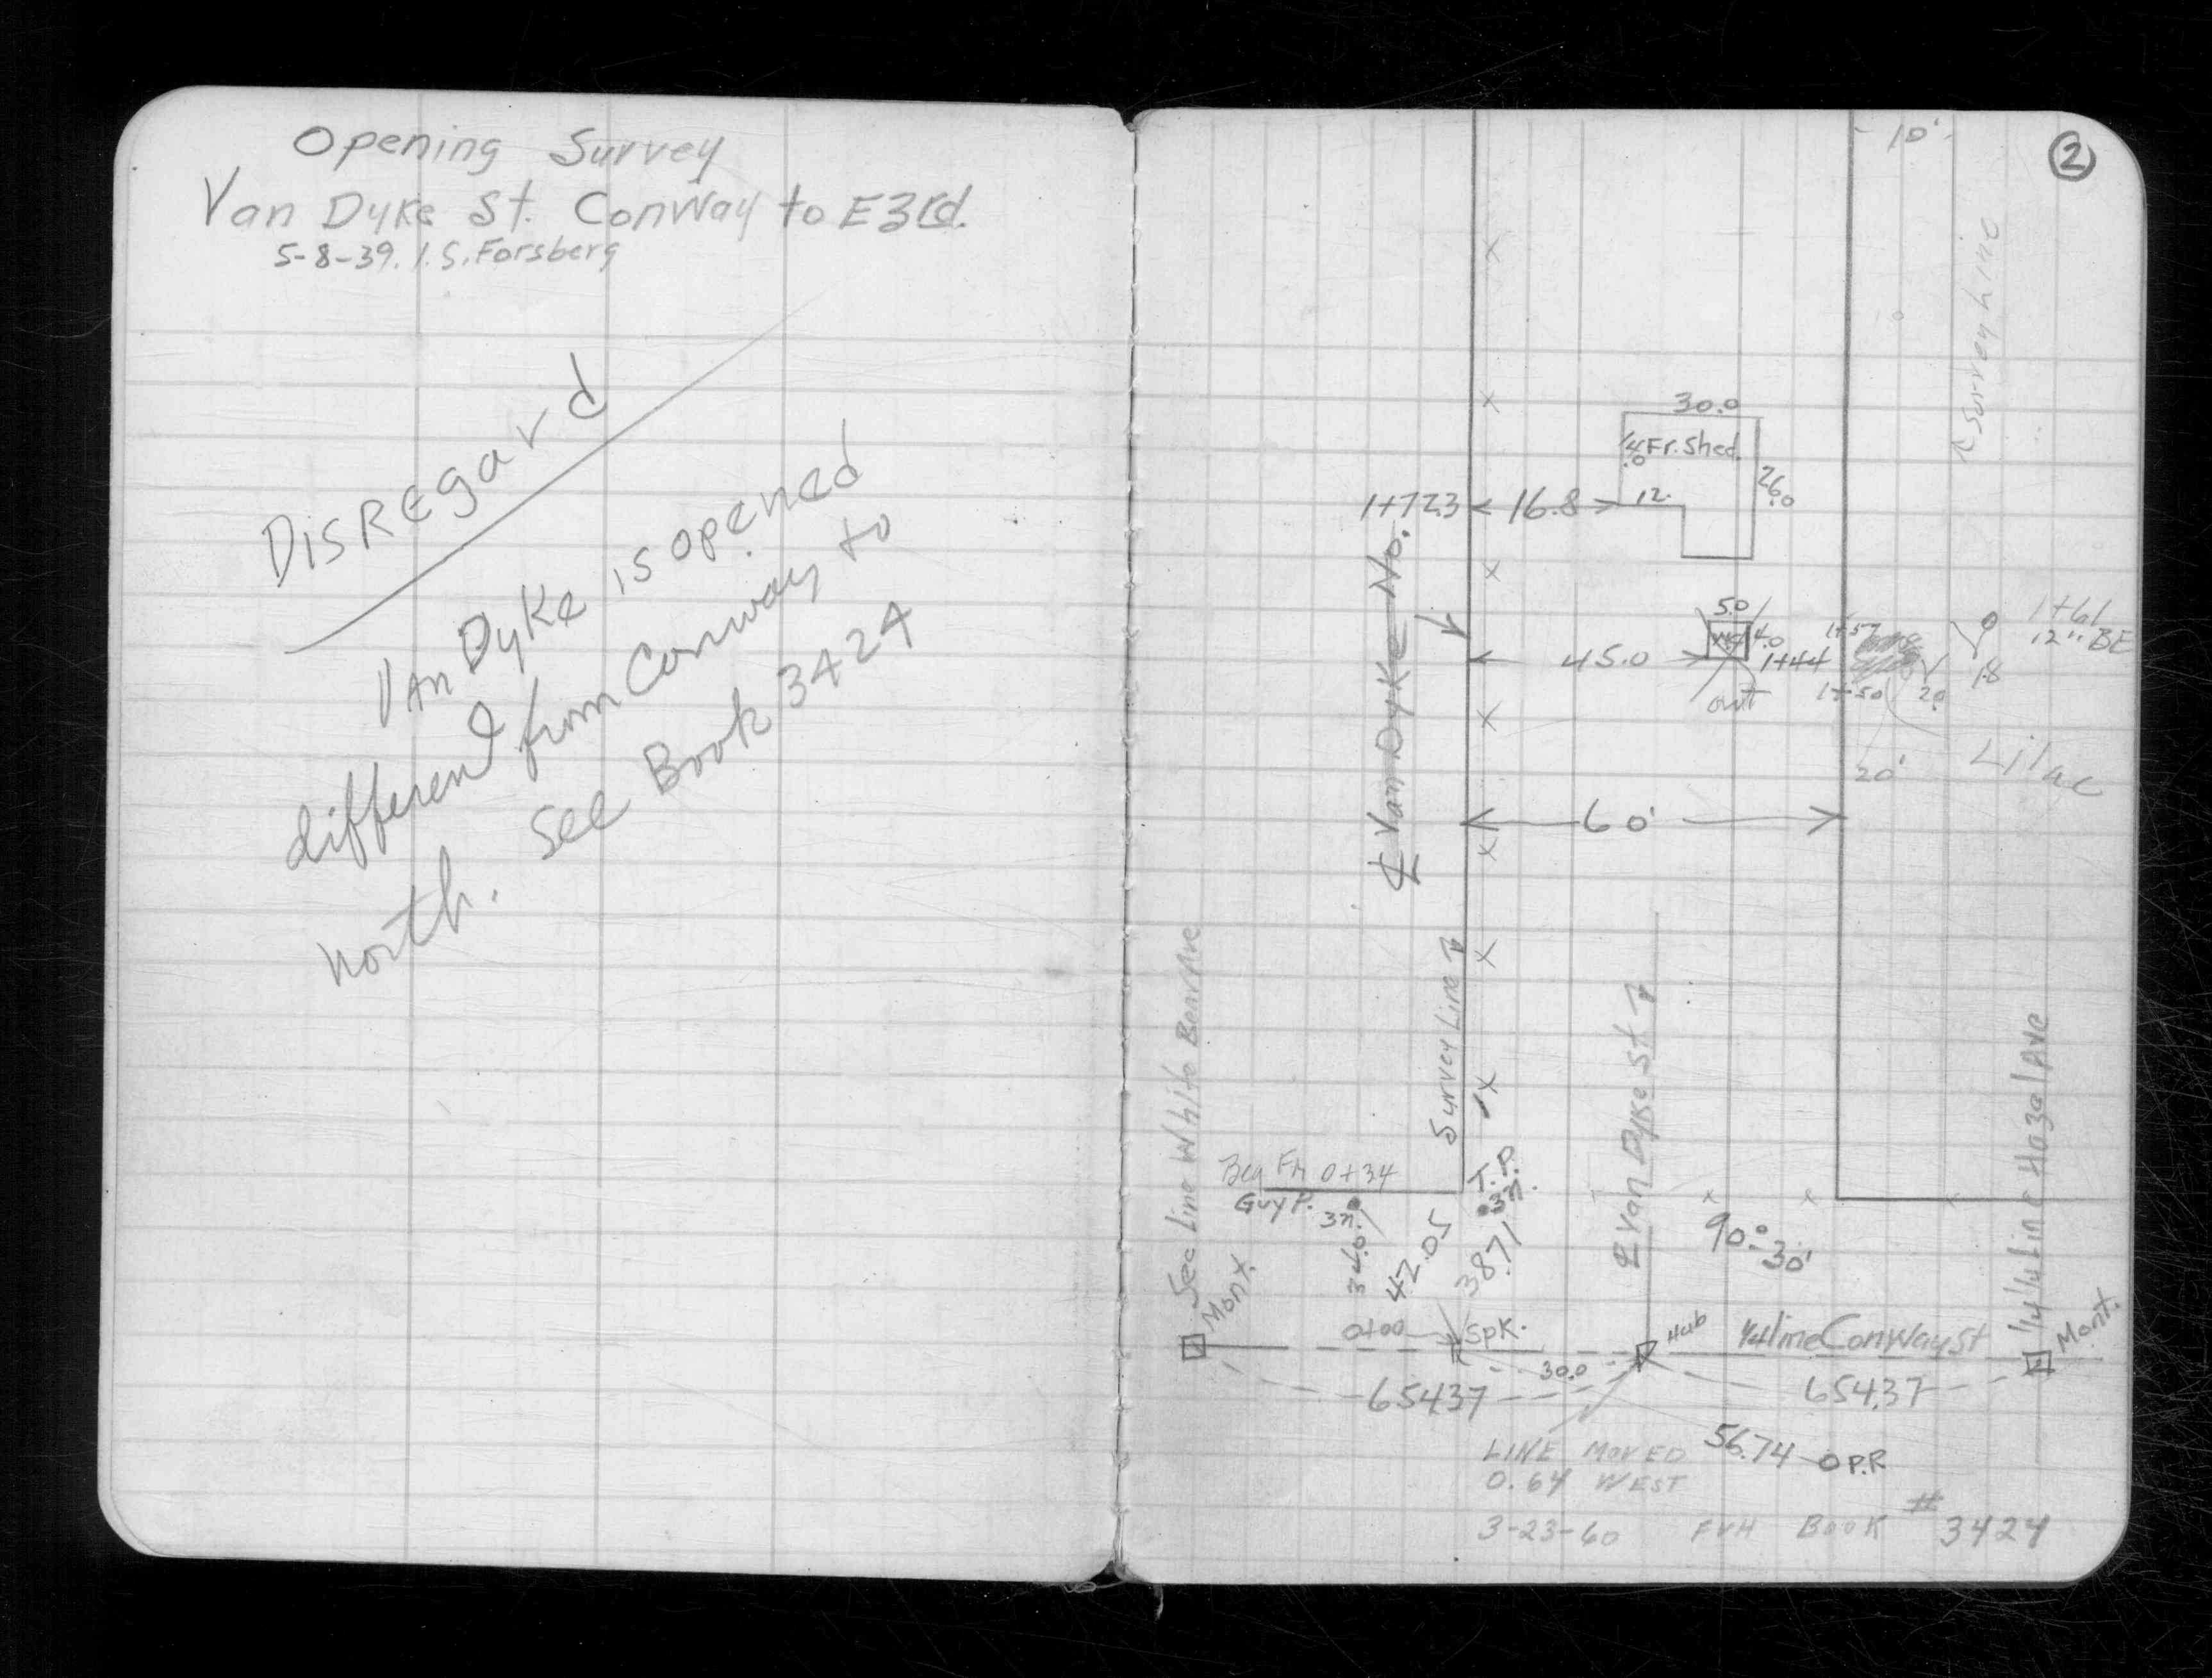 Opening Survey
Van Dyke St. Conway to E 3rd.
5-8-39. I.S. Forsberg
DISREgard
VAn Dyke is opened
different from Conway to
north. See Book 3424
2
10'
Survey Line
30.0
14.0
Fr. Shed.
26.0
12.
1+72.3
16.8
℄ Van Dyke No.
5.0
4.0
1+44
out
45.0
1+57
1+50
20
18
1+61
12" BE
20'
Lilac
60'
Survey Line
℄ Van Dyke St
Sec Line White Bear Ave
1/4 Line Hazel Ave
Beg Fn 0+34
Guy P.
3n.
T.P.
3n.
34.0
42.05
38.71
90°-30'
Mont.
0+00
Spk.
Hub
1/4 line Conway St
Mont.
30.0
654.37
654.37
56.74 O P.R
LINE MOVED
0.64 WEST
3-23-60 FVH BOOK # 3424